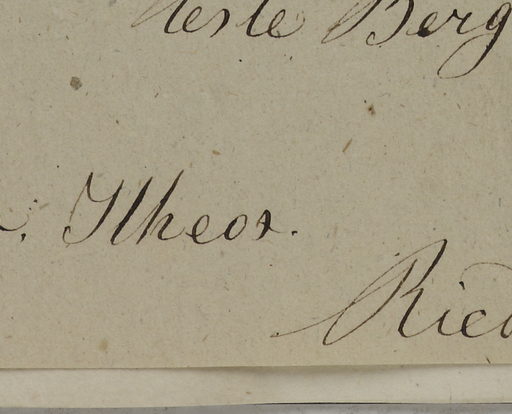 este Berg
Ilheos.
Ried